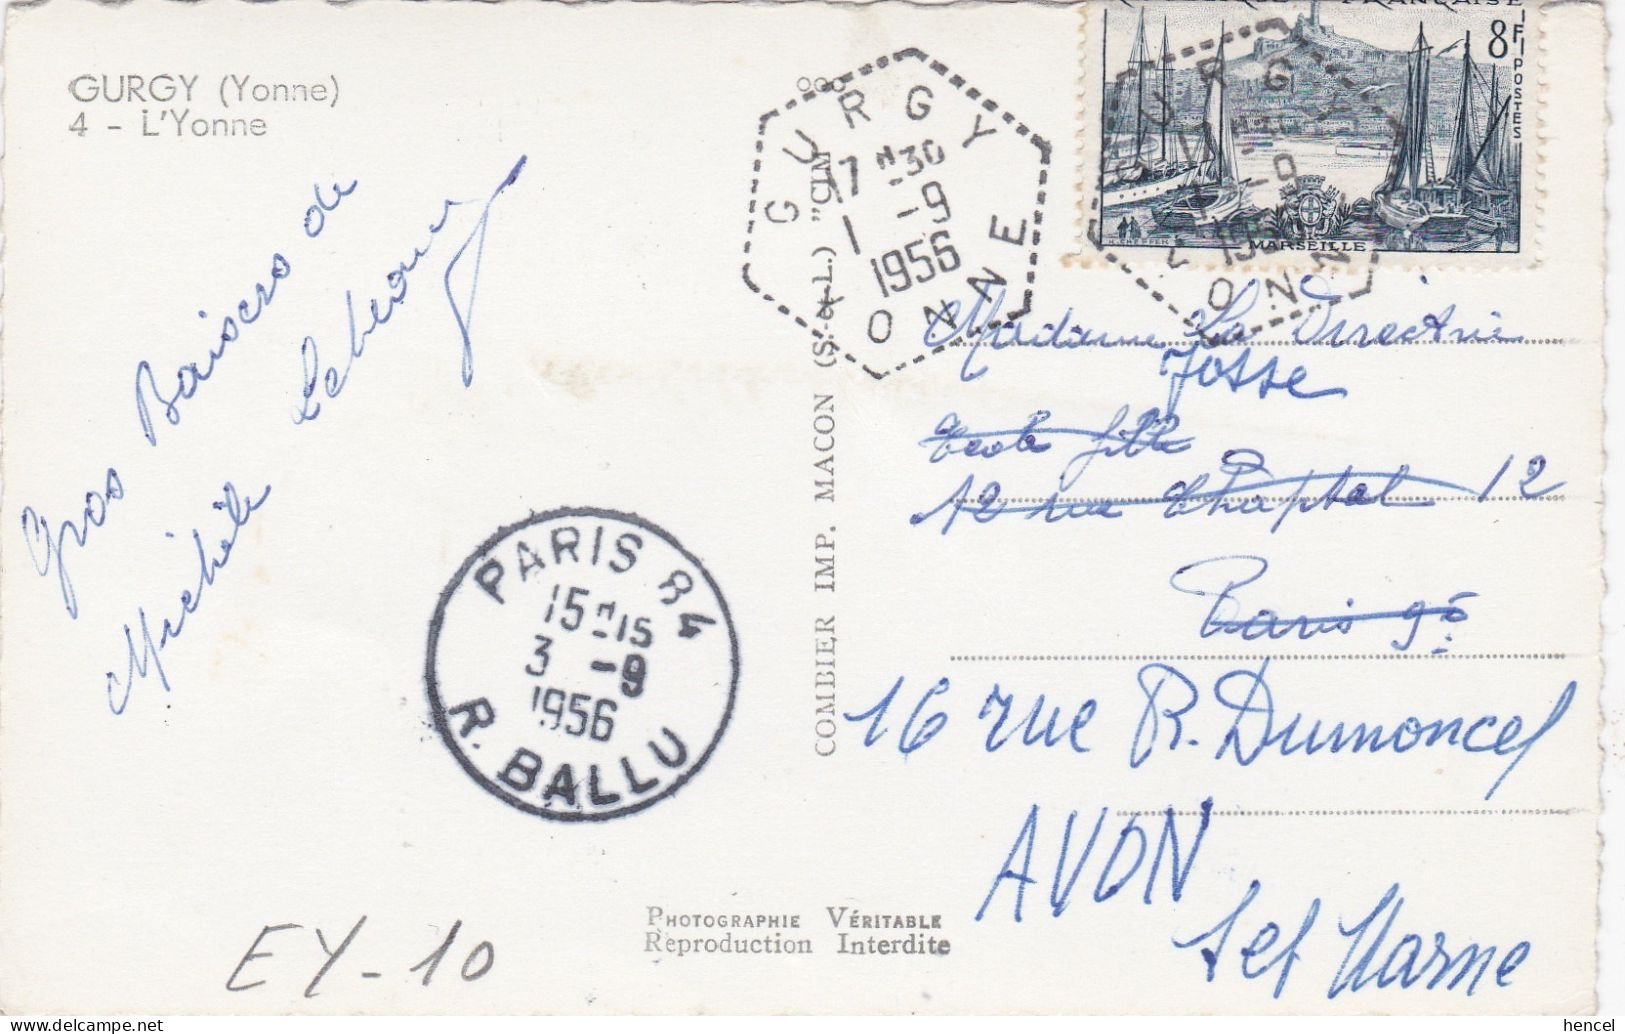 GURGY (Yonne)
4 - L'Yonne
Gros Baisers de
Michèle
GURGY
17 H 30
1 - 9
1956
YONNE
8F
POSTES
MARSEILLE
GURGY
- 9
YONNE
COMBIER IMP. MACON (S.-et-L.) "CIM
Madame La Directrice
Josse
Ecole fille
12 rue Chaptal 12
Paris 9è
16 rue R. Dumoncel
AVON
Set Marne
PARIS 84
15 H 15
3 - 9
1956
R. BALLU
PHOTOGRAPHIE VÉRITABLE
Reproduction Interdite
EY-10
hencel